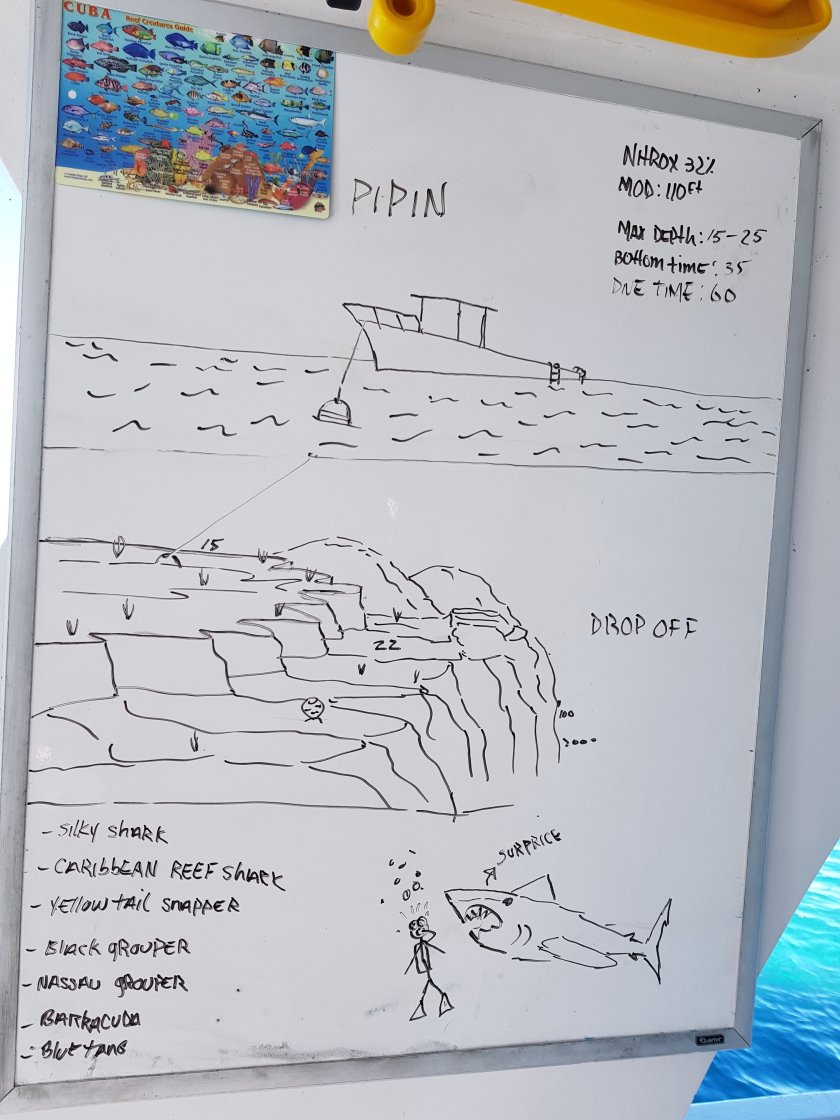 CUBA
Reef Creatures Guide
PIPIN
NITROX 32%
MOD: 110Ft
MAX DEPth: 15-25
Bottom time: 35
DIVE TIME: 60
15
22
DROP OFF
100
SURPRICE
- SILKY SHARK
- CARIbbEAN REEF ShARK
- YELLOW tAIL SNAPPER
- BlACK gROUPER
- NASSAU gROUPER
- BARRACUDA
- BLUE TANG
Quartet